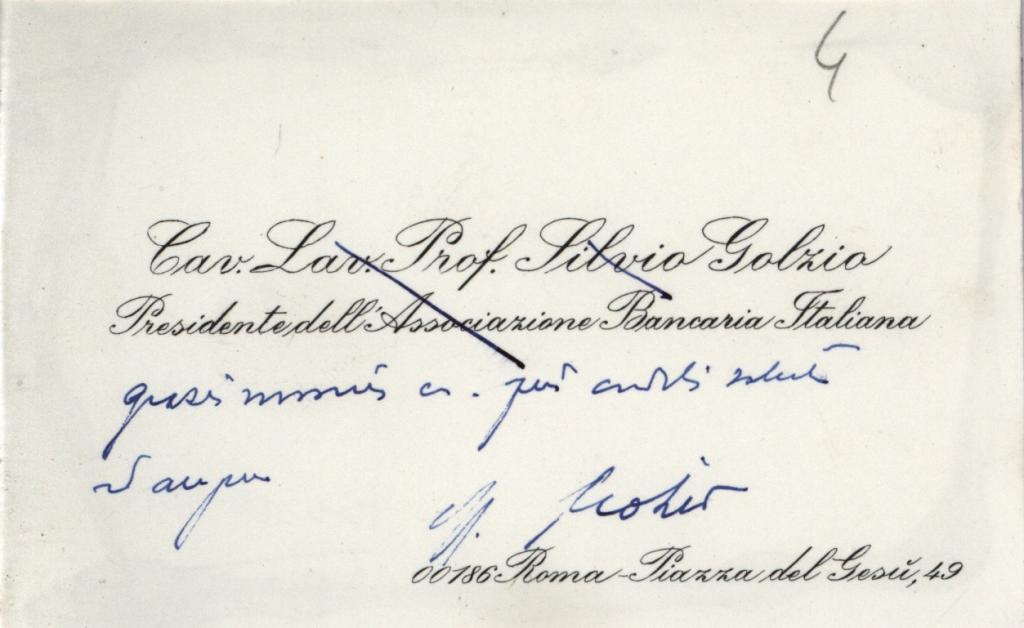 4
Cav. Lav. Prof. Silvio Golzio
Presidente dell'Associazione Bancaria Italiana
più cordiali saluti
00186 Roma - Piazza del Gesù, 49